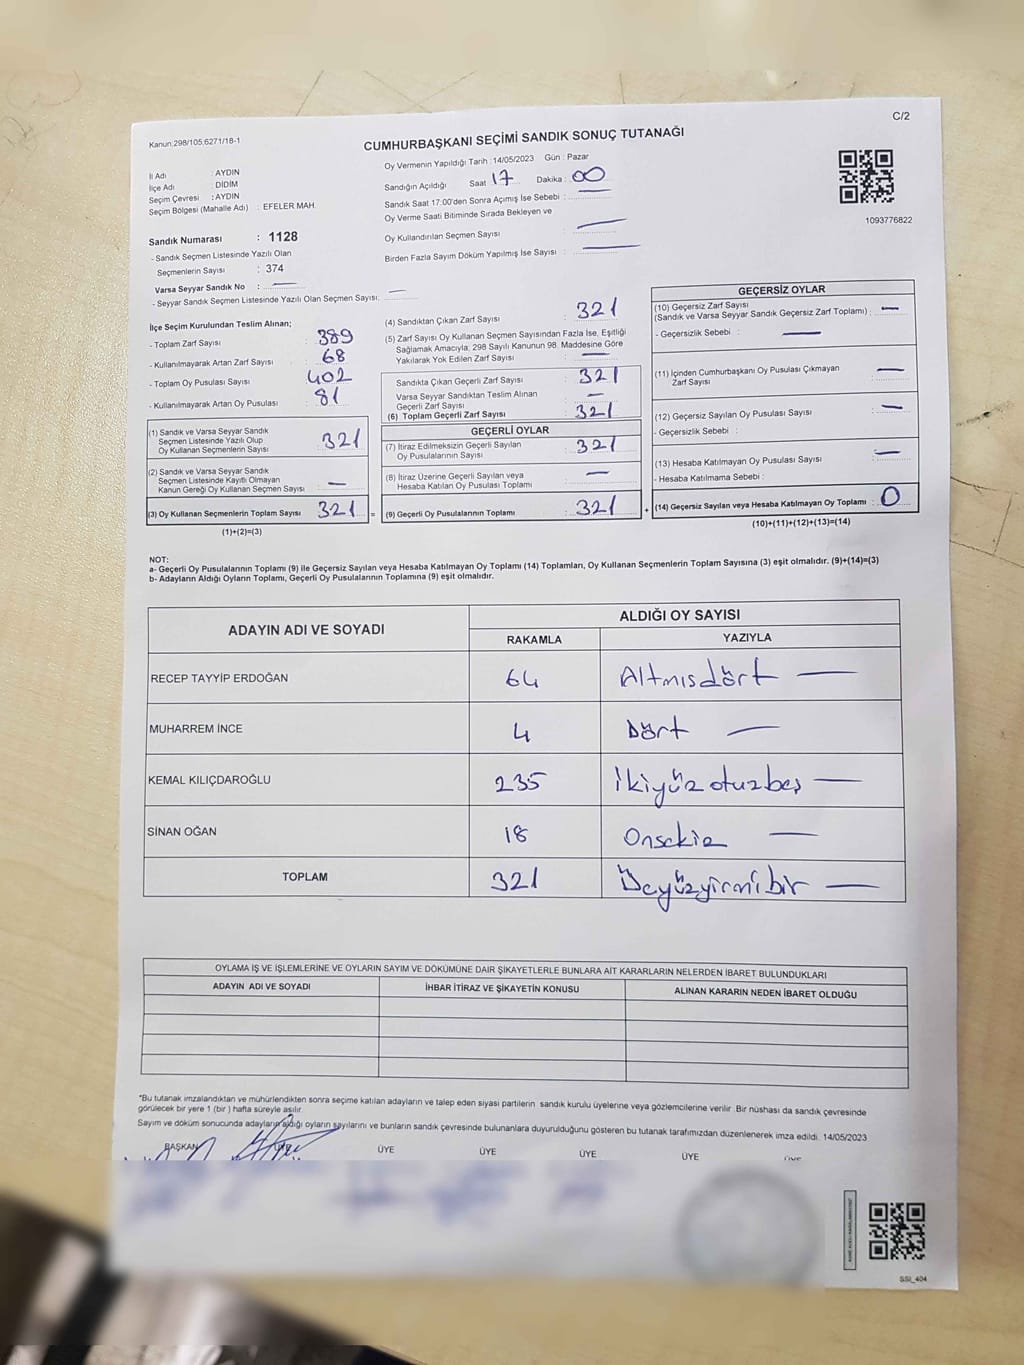 C/2
Kanun:298/105,6271/18-1
CUMHURBAŞKANI SEÇİMİ SANDIK SONUÇ TUTANAĞI
İl Adı : AYDIN
İlçe Adı : DİDİM
Seçim Çevresi : AYDIN
Seçim Bölgesi (Mahalle Adı) : EFELER MAH.
Oy Vermenin Yapıldığı Tarih : 14/05/2023 Gün : Pazar
Sandığın Açıldığı Saat 17 Dakika : 00
Sandık Saat 17:00'den Sonra Açımış İse Sebebi : —
Oy Verme Saati Bitiminde Sırada Bekleyen ve
Oy Kullandırılan Seçmen Sayısı : —
Birden Fazla Sayım Döküm Yapılmış İse Sayısı : —
1093776822
Sandık Numarası : 1128
- Sandık Seçmen Listesinde Yazılı Olan
Seçmenlerin Sayısı : 374
Varsa Seyyar Sandık No : —
- Seyyar Sandık Seçmen Listesinde Yazılı Olan Seçmen Sayısı: —
İlçe Seçim Kurulundan Teslim Alınan;
- Toplam Zarf Sayısı : 389
- Kullanılmayarak Artan Zarf Sayısı : 68
- Toplam Oy Pusulası Sayısı : 402
- Kullanılmayarak Artan Oy Pusulası : 81
(1) Sandık ve Varsa Seyyar Sandık
Seçmen Listesinde Yazılı Olup
Oy Kullanan Seçmenlerin Sayısı : 321
(2) Sandık ve Varsa Seyyar Sandık
Seçmen Listesinde Kayıtlı Olmayan
Kanun Gereği Oy Kullanan Seçmen Sayısı : —
(3) Oy Kullanan Seçmenlerin Toplam Sayısı : 321 =
(1)+(2)=(3)
(4) Sandıktan Çıkan Zarf Sayısı : 321
(5) Zarf Sayısı Oy Kullanan Seçmen Sayısından Fazla İse, Eşitliği
Sağlamak Amacıyla; 298 Sayılı Kanunun 98. Maddesine Göre
Yakılarak Yok Edilen Zarf Sayısı : —
Sandıkta Çıkan Geçerli Zarf Sayısı : 321
Varsa Seyyar Sandıktan Teslim Alınan
Geçerli Zarf Sayısı : —
(6) Toplam Geçerli Zarf Sayısı : 321
GEÇERLİ OYLAR
(7) İtiraz Edilmeksizin Geçerli Sayılan
Oy Pusulalarının Sayısı : 321
(8) İtiraz Üzerine Geçerli Sayılan veya
Hesaba Katılan Oy Pusulası Toplamı : —
(9) Geçerli Oy Pusulalarının Toplamı : 321 +
GEÇERSİZ OYLAR
(10) Geçersiz Zarf Sayısı
(Sandık ve Varsa Seyyar Sandık Geçersiz Zarf Toplamı) : —
- Geçersizlik Sebebi : —
(11) İçinden Cumhurbaşkanı Oy Pusulası Çıkmayan
Zarf Sayısı : —
(12) Geçersiz Sayılan Oy Pusulası Sayısı : —
- Geçersizlik Sebebi :
(13) Hesaba Katılmayan Oy Pusulası Sayısı : —
- Hesaba Katılmama Sebebi :
(14) Geçersiz Sayılan veya Hesaba Katılmayan Oy Toplamı : 0
(10)+(11)+(12)+(13)=(14)
NOT:
a- Geçerli Oy Pusulalarının Toplamı (9) ile Geçersiz Sayılan veya Hesaba Katılmayan Oy Toplamı (14) Toplamları, Oy Kullanan Seçmenlerin Toplam Sayısına (3) eşit olmalıdır. (9)+(14)=(3)
b- Adayların Aldığı Oyların Toplamı, Geçerli Oy Pusulalarının Toplamına (9) eşit olmalıdır.
ADAYIN ADI VE SOYADI ALDIĞI OY SAYISI
RAKAMLA YAZIYLA
RECEP TAYYİP ERDOĞAN 64 Altmısdört —
MUHARREM İNCE 4 Dört —
KEMAL KILIÇDAROĞLU 235 İkiyüz otuzbeş —
SİNAN OĞAN 18 Onsekiz —
TOPLAM 321 Üçyüzyirmibir —
OYLAMA İŞ VE İŞLEMLERİNE VE OYLARIN SAYIM VE DÖKÜMÜNE DAİR ŞİKAYETLERLE BUNLARA AİT KARARLARIN NELERDEN İBARET BULUNDUKLARI
ADAYIN ADI VE SOYADI İHBAR İTİRAZ VE ŞİKAYETİN KONUSU ALINAN KARARIN NEDEN İBARET OLDUĞU
*Bu tutanak imzalandıktan ve mühürlendikten sonra seçime katılan adayların ve talep eden siyasi partilerin sandık kurulu üyelerine veya gözlemcilerine verilir. Bir nüshası da sandık çevresinde
görülecek bir yere 1 (bir ) hafta süreyle asılır.
Sayım ve döküm sonucunda adayların aldığı oyların sayılarını ve bunların sandık çevresinde bulunanlara duyurulduğunu gösteren bu tutanak tarafımızdan düzenlenerek imza edildi. 14/05/2023
BAŞKAN ÜYE ÜYE ÜYE ÜYE ÜYE
SSI_404